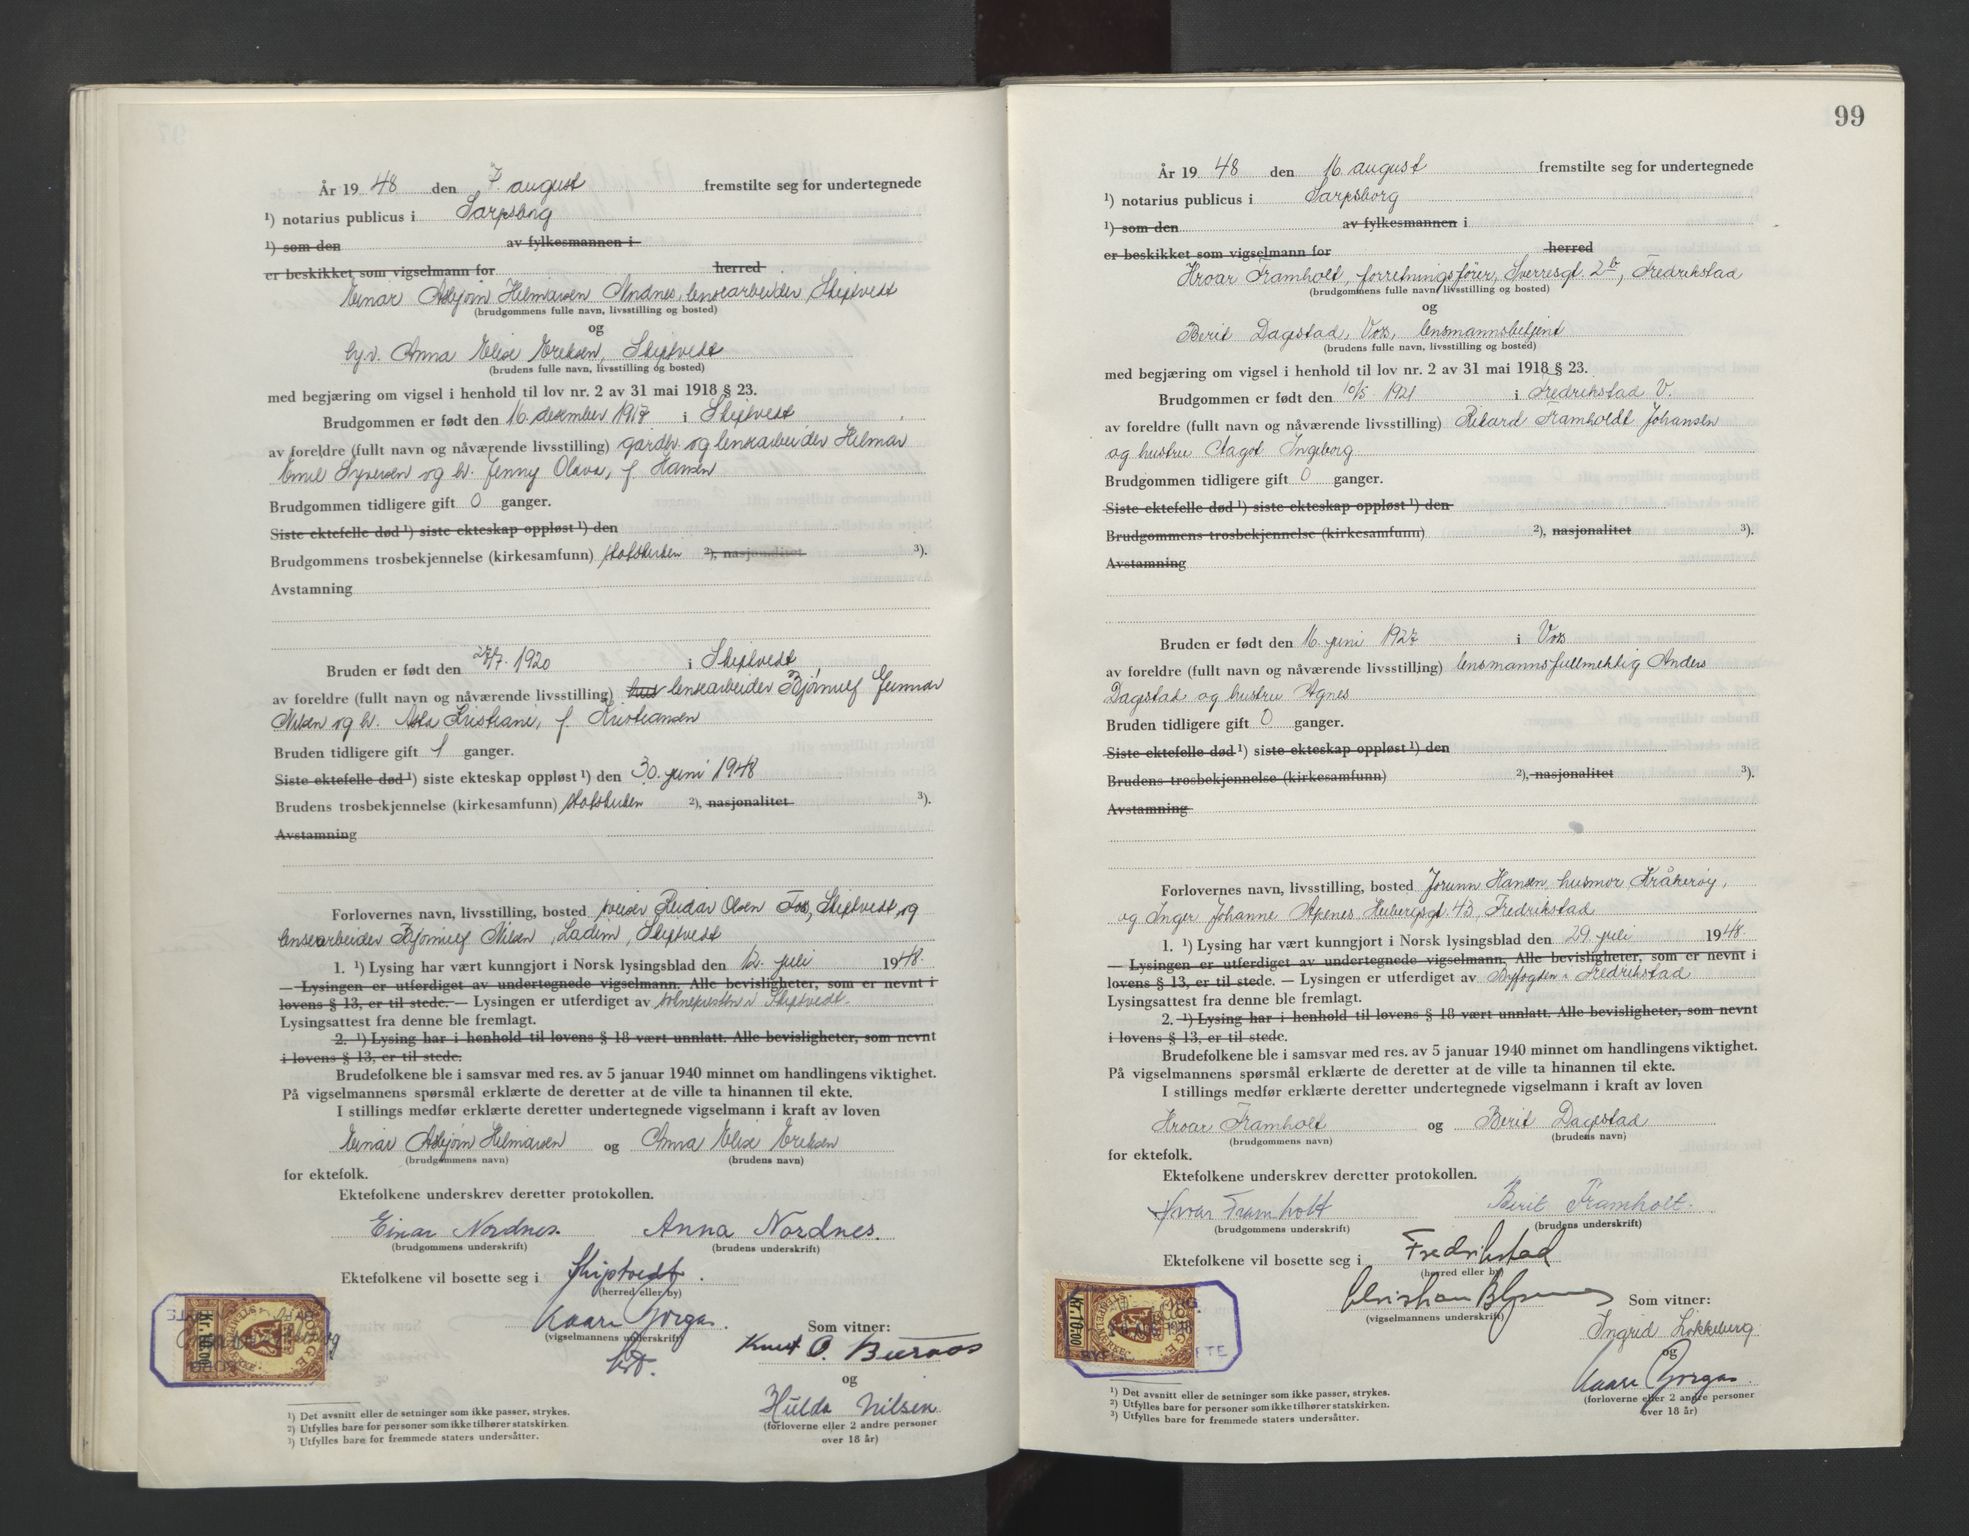 År 19 48 den 7. august fremstilte seg for undertegnede
¹) notarius publicus i Sarpsborg
¹) som den av fylkesmannen i
er beskikket som vigselmann for herred
Einar Asbjørn Hilmarsen Nordnes, lensearbeider, Skiptvedt
(brudgommens fulle navn, livsstilling og bosted)
og
Anna Elise Eriksen, Skiptvedt
(brudens fulle navn, livsstilling og bosted)
med begjæring om vigsel i henhold til lov nr. 2 av 31 mai 1918 § 23.
Brudgommen er født den 16. desember 1917 i Skiptvedt
av foreldre (fullt navn og nåværende livsstilling) gårdbr. og lensearbeider Hilmar
Emil Syversen og h. Jenny Olava, f. Hansen
Brudgommen tidligere gift 0 ganger.
Siste ektefelle død ¹) siste ekteskap oppløst ¹) den
Brudgommens trosbekjennelse (kirkesamfunn) statskirken ²), nasjonalitet ³).
Avstamning
Bruden er født den 27/7. 1920 i Skiptvedt
av foreldre (fullt navn og nåværende livsstilling) hus lensearbeider Bjørnulf Gunnar
Nilsen og h. Asta Kristiane, f. Kristiansen
Bruden tidligere gift 1 ganger.
Siste ektefelle død ¹) siste ekteskap oppløst ¹) den 30. juni 1948
Brudens trosbekjennelse (kirkesamfunn) statskirken ²), nasjonalitet ³).
Avstamning
Forlovernes navn, livsstilling, bosted sveiser Reidar Olsen Foss, Skiptvedt, og
lensearbeider Bjørnulf Nilsen, Ladim, Skiptvedt
1. ¹) Lysing har vært kunngjort i Norsk lysingsblad den 12. juli 1948.
— Lysingen er utferdiget av undertegnede vigselmann. Alle bevisligheter, som er nevnt i
lovens § 13, er til stede. — Lysingen er utferdiget av soknepresten i Skiptvedt.
Lysingsattest fra denne ble fremlagt.
2. ¹) Lysing har i henhold til lovens § 18 vært unnlatt. Alle bevisligheter, som nevnt
i lovens § 13, er til stede.
Brudefolkene ble i samsvar med res. av 5 januar 1940 minnet om handlingens viktighet.
På vigselmannens spørsmål erklærte de deretter at de ville ta hinannen til ekte.
I stillings medfør erklærte deretter undertegnede vigselmann i kraft av loven
Einar Asbjørn Hilmarsen og Anna Elise Eriksen
(brudgommens navn) (brudens navn)
for ektefolk.
Ektefolkene underskrev deretter protokollen.
Einar Nordnes. Anna Nordnes.
(brudgommens underskrift) (brudens underskrift)
Ektefolkene vil bosette seg i Skiptvedt.
(herred eller by)
Kaare Gorgas. Som vitner:
(vigselmannens underskrift) Knut O. Buraas
og
Hulda Nilsen
(forloverne eller 2 andre personer
over 18 år)
Kr. 10.00
NORGE
STEMPELMERKE
¹) Det avsnitt eller de setninger som ikke passer, strykes.
²) Utfylles bare for personer som ikke tilhører statskirken.
³) Utfylles bare for fremmede staters undersåtter.
99
År 19 48 den 16. august fremstilte seg for undertegnede
¹) notarius publicus i Sarpsborg
¹) som den av fylkesmannen i
er beskikket som vigselmann for herred
Hroar Framholt, forretningsfører, Sverresgt. 2b, Fredrikstad
(brudgommens fulle navn, livsstilling og bosted)
og
Berit Dagestad, Voss, lensmannsbetjent
(brudens fulle navn, livsstilling og bosted)
med begjæring om vigsel i henhold til lov nr. 2 av 31 mai 1918 § 23.
Brudgommen er født den 10/5 1921 i Fredrikstad V.
av foreldre (fullt navn og nåværende livsstilling) Rikard Framholdt Johansen
og hustru Dagot Ingeborg
Brudgommen tidligere gift 0 ganger.
Siste ektefelle død ¹) siste ekteskap oppløst ¹) den
Brudgommens trosbekjennelse (kirkesamfunn) ²), nasjonalitet ³).
Avstamning
Bruden er født den 16. juni 1927 i Voss
av foreldre (fullt navn og nåværende livsstilling) lensmannsfullmektig Anders
Dagestad og hustru Agnes
Bruden tidligere gift 0 ganger.
Siste ektefelle død ¹) siste ekteskap oppløst ¹) den
Brudens trosbekjennelse (kirkesamfunn) ²), nasjonalitet ³).
Avstamning
Forlovernes navn, livsstilling, bosted Jorunn Hansen, husmor, Kråkerøy,
og Inger Johanne Apenes, Heibergsgt. 43, Fredrikstad
1. ¹) Lysing har vært kunngjort i Norsk lysingsblad den 29. juli 1948.
— Lysingen er utferdiget av undertegnede vigselmann. Alle bevisligheter, som er nevnt i
lovens § 13, er til stede. — Lysingen er utferdiget av Byfogden i Fredrikstad
Lysingsattest fra denne ble fremlagt.
2. ¹) Lysing har i henhold til lovens § 18 vært unnlatt. Alle bevisligheter, som nevnt
i lovens § 13, er til stede.
Brudefolkene ble i samsvar med res. av 5 januar 1940 minnet om handlingens viktighet.
På vigselmannens spørsmål erklærte de deretter at de ville ta hinannen til ekte.
I stillings medfør erklærte deretter undertegnede vigselmann i kraft av loven
Hroar Framholt og Berit Dagestad
(brudgommens navn) (brudens navn)
for ektefolk.
Ektefolkene underskrev deretter protokollen.
Hroar Framholt Berit Framholt.
(brudgommens underskrift) (brudens underskrift)
Ektefolkene vil bosette seg i Fredrikstad
(herred eller by)
Christian Som vitner:
(vigselmannens underskrift)
Ingrid Løkkeberg
og
Kaare Gorgas.
(forloverne eller 2 andre personer
over 18 år)
Kr. 10.00
NORGE
STEMPELMERKE
¹) Det avsnitt eller de setninger som ikke passer, strykes.
²) Utfylles bare for personer som ikke tilhører statskirken.
³) Utfylles bare for fremmede staters undersåtter.